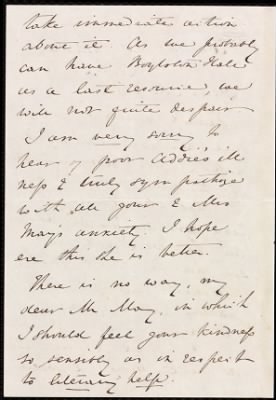 take immediate action
about it. As we probably
can have Boylston Hall
as a last resource, we
will not quite despair
I am very sorry to
hear of poor Addie's ill
ness & truly sympathize
with all your & Mrs
May's anxiety. I hope
ere this she is better.
There is no way, my
dear Mr May, in which
I should feel your kindness
so sensibly as in respect
to literary help.